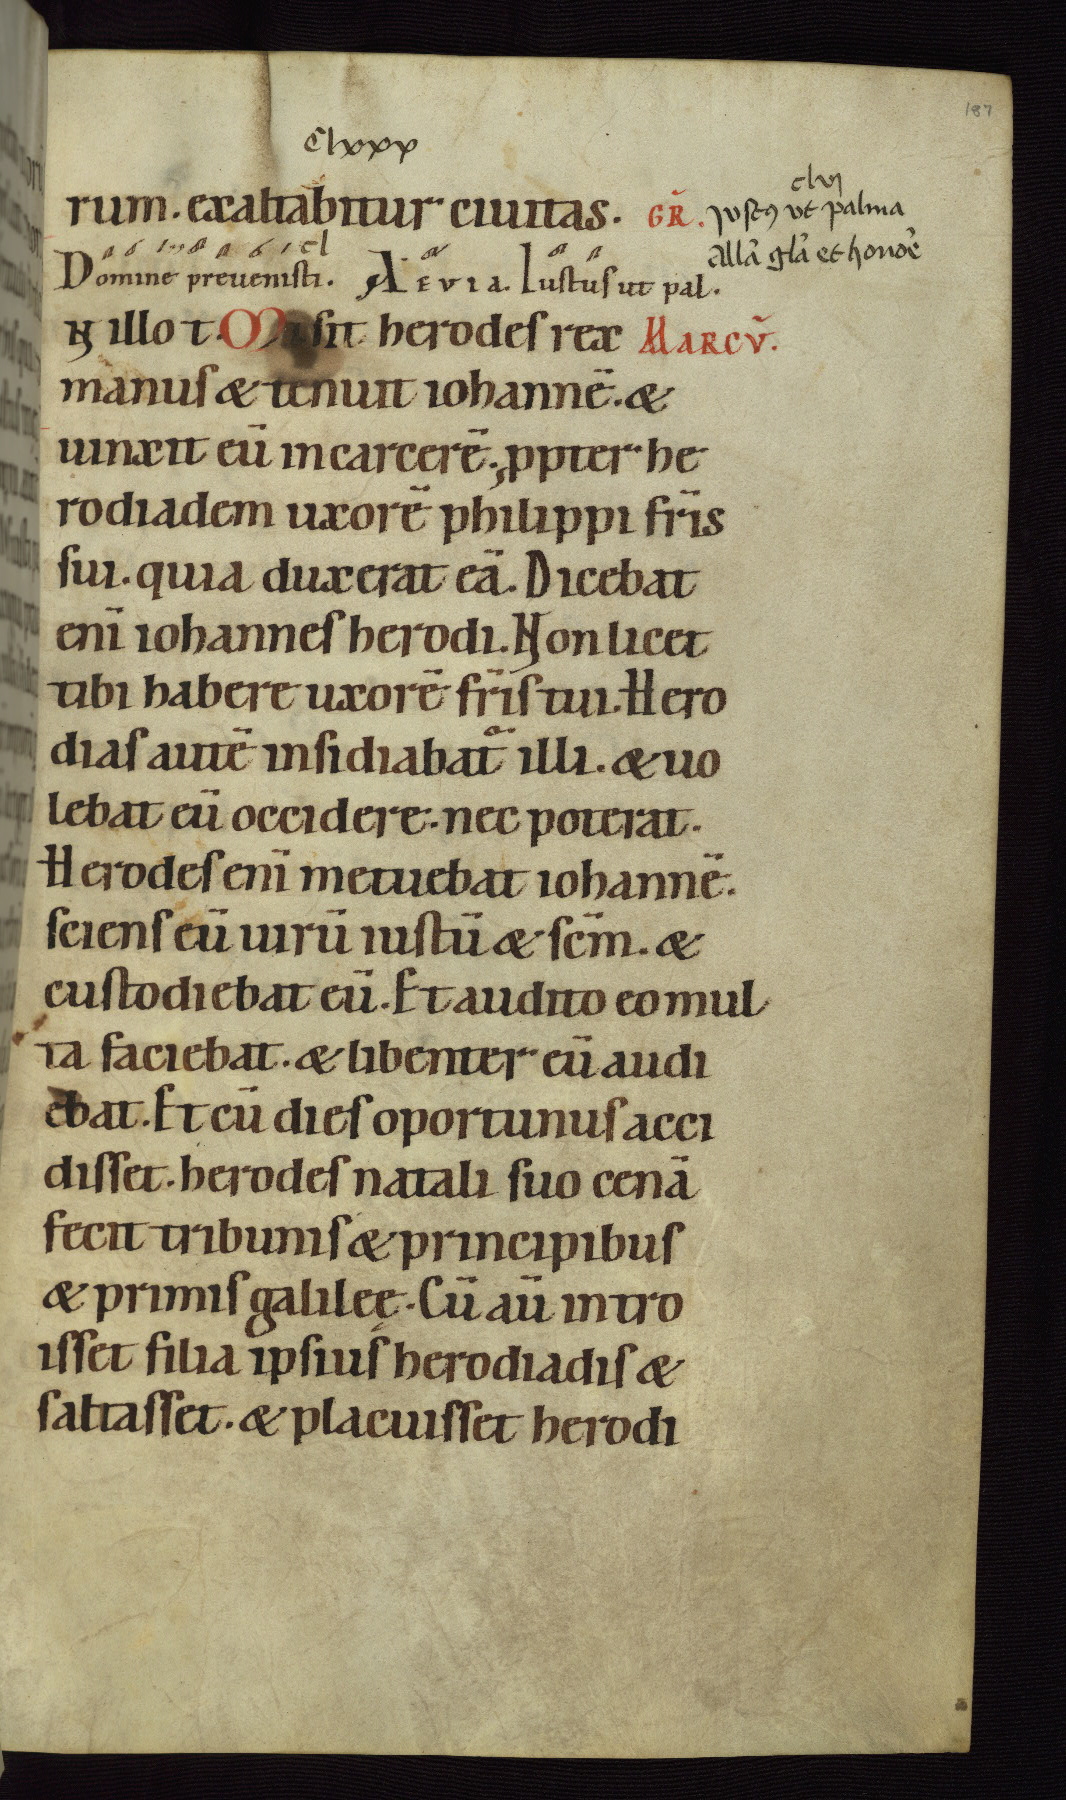 187
Clxxx
rum. exaltabitur ciuitas. GR̄. clvj Justꝰ vt palma
Domine preuenisti. cl AEVIA. Iustus ut pal. Allā glā et honoē
IN illo t. Misit herodes rex MARCV̄.
manus & tenuit iohannē. &
uinxit eū in carcerē. ꝓpter he
rodiadem uxorē philippi fr̄is
sui. quia duxerat eā. Dicebat
enī iohannes herodi. Non licet
tibi habere uxorē fr̄is tui. Hero
dias autē insidiabat̄ illi. & uo
lebat eū occidere. nec poterat.
Herodes enī metuebat iohannē.
sciens eū uirū iustū & sc̄m. &
custodiebat eū. Et audito eo mul
ta faciebat. & libenter eū audi
ebat. Et cū dies oportunus acci
disset. herodes natali suo cenā
fecit tribunis & principibus
& primis galileę. Cū aū intro
isset filia ipsius herodiadis &
saltasset. & placuisset herodi